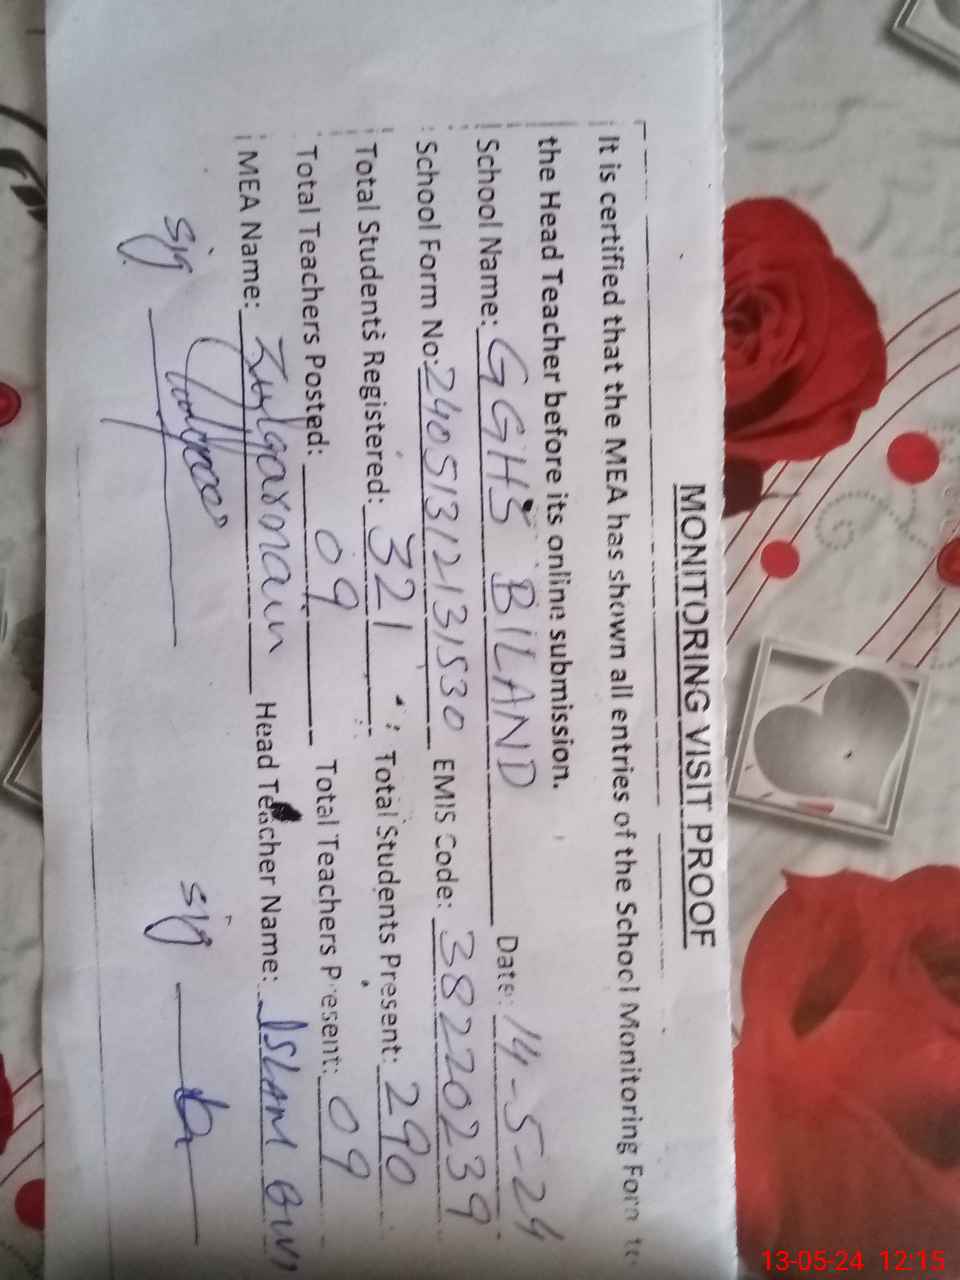 MONITORING VISIT PROOF
It is certified that the MEA has shown all entries of the School Monitoring Form to
the Head Teacher before its online submission.
School Name: GGHS BILAND Date: 14-5-24
School Form No: 24051312131530 EMIS Code: 38220239
Total Students Registered: 321 Total Students Present: 290
Total Teachers Posted: 09 Total Teachers Present: 09
MEA Name: Zulqarnain Head Teacher Name: ISLAM
sig sig
13-05-24 12:15